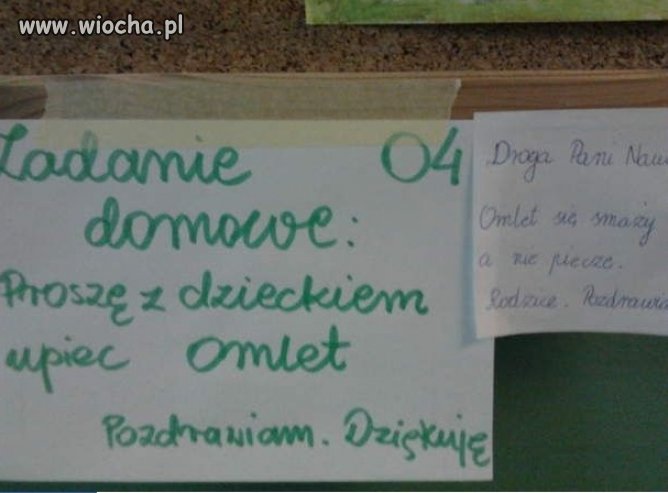 www.wiocha.pl
Zadanie 04
domowe:
Proszę z dzieckiem
upiec omlet
Pozdrawiam. Dziękuję
Droga Pani
Omlet się smaży
a nie piecze.
Rodzice.